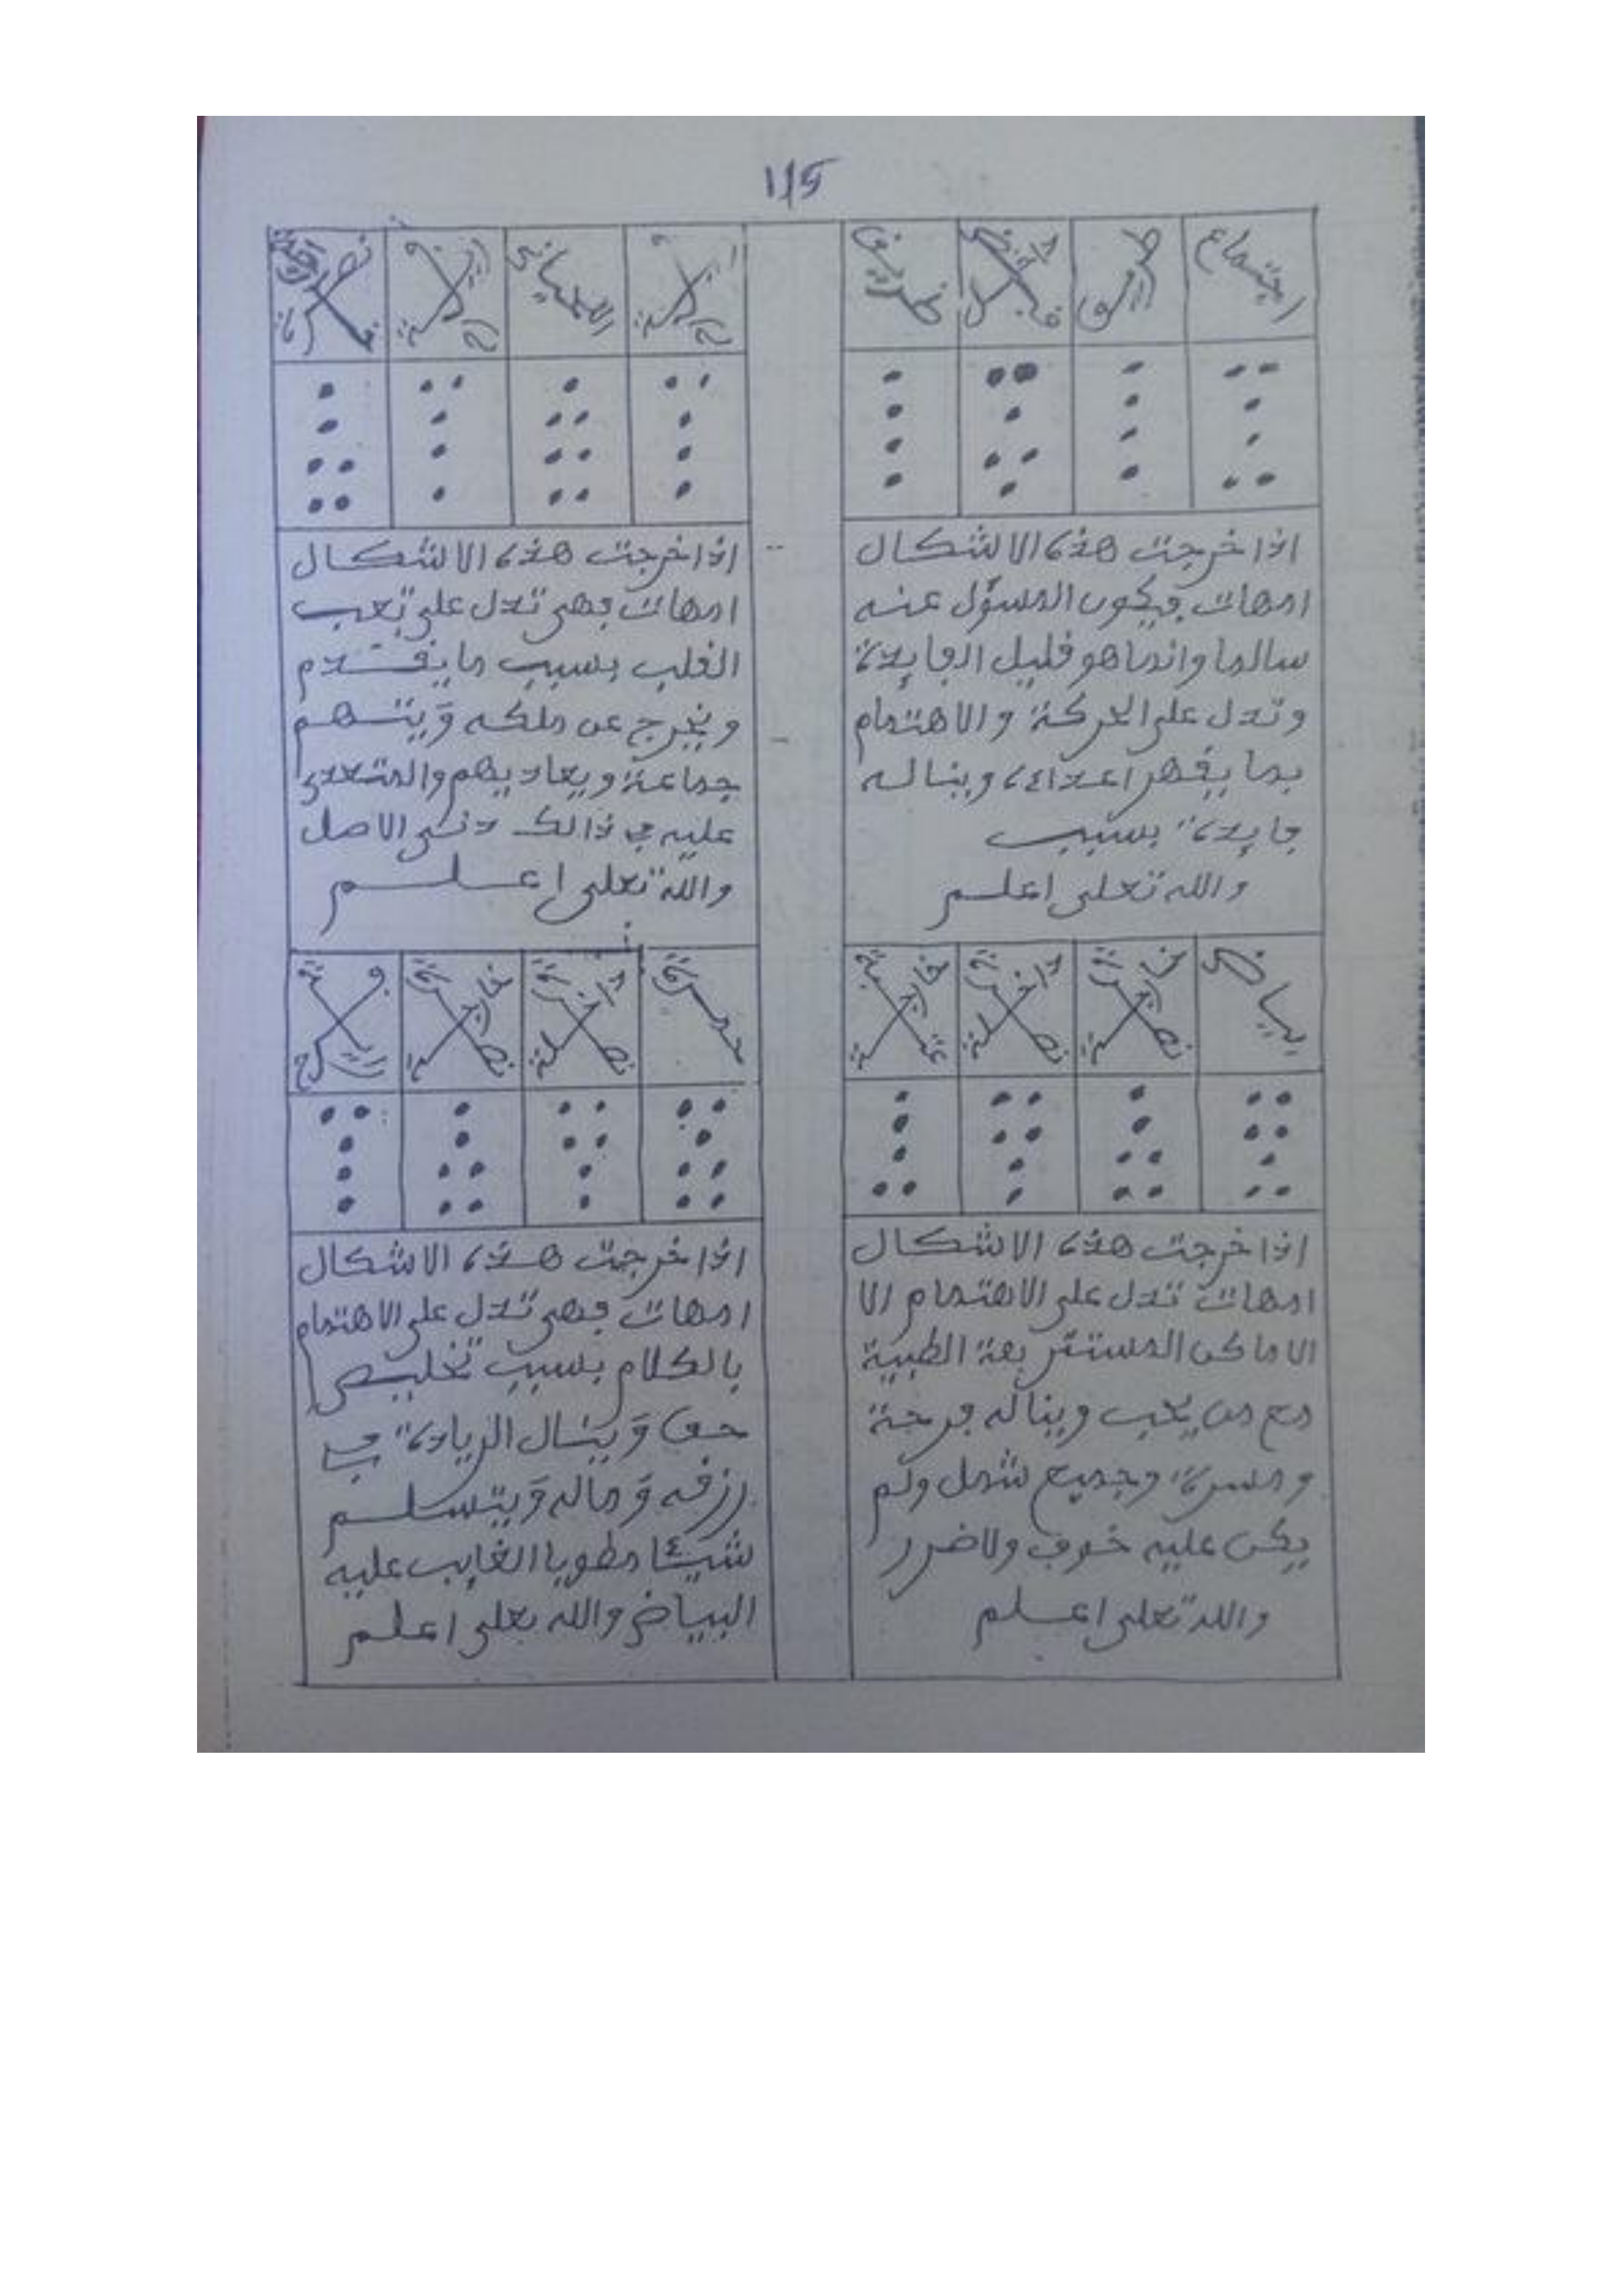 115
اجتماع
طريق
اذا خرجت هذه الاشكال
امهات فيكون المسؤل عنه
سالما وانما هو قليل الفايدة
وتدل على الحركة والاهتمام
بما يقهر اعداءه ويناله
فايدة بسبب
والله تعلى اعلم
اذا خرجت هذه الاشكال
امهات فهي تدل على تعب
القلب بسبب ما يقدم
ويخرج عن ملكه وَيتهم
جماعة ويعاديهم والمتعدى
عليه في ذالك دنى الاصل
والله تعلى اعلم
بياض
نصرة خارجة
نصرة داخلة
عتبة خارجة
اذا خرجت هذه الاشكال
امهات تدل على الاهتمام الا
الاماكن المستتر بعة الطيبة
مع من يحب ويناله فرحة
ومسرة وجميع شمل ولم
يكن عليه خوف ولا ضرر
والله تعلى اعلم
حمرة
نصرة داخلة
نصرة خارجة
اذا خرجت هذه الاشكال
امهات فهي تدل على الاهتمام
بالكلام بسبب تخليص
حق وَينال الزيادة في
رزقه وَماله وَيتسلم
شيئا مطويا الغايب عليه
البياض والله تعلى اعلم